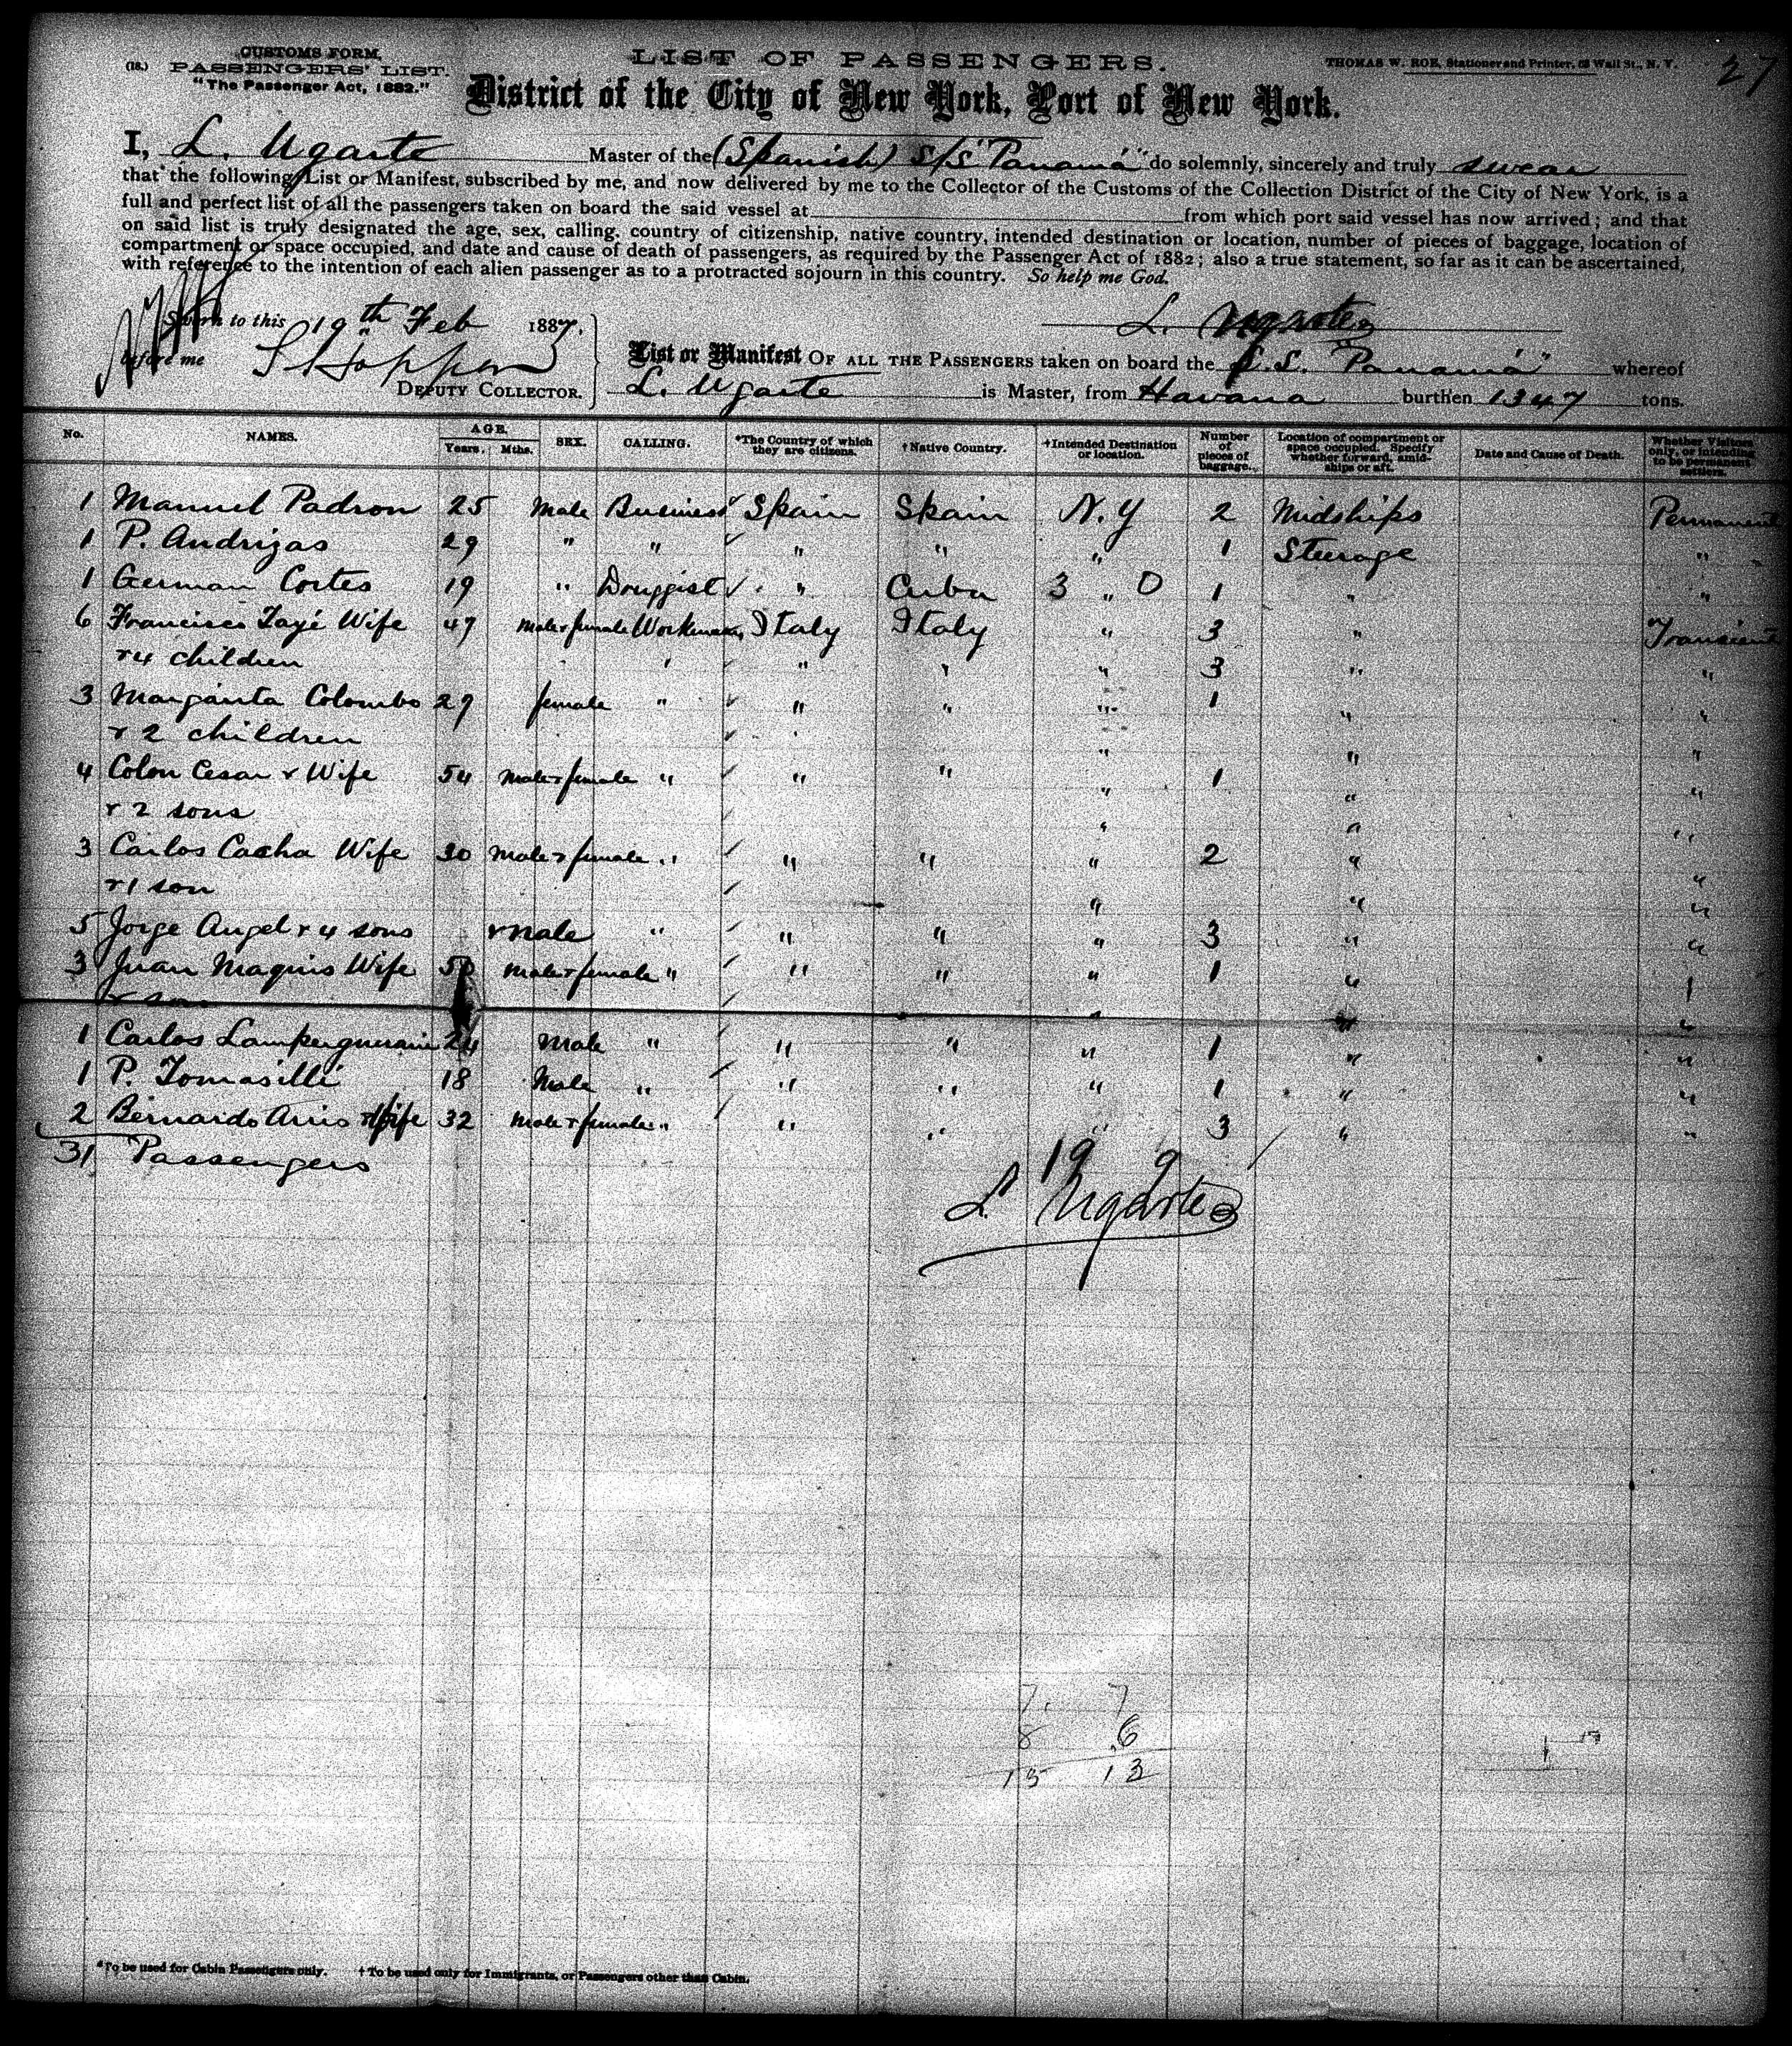 27
CUSTOMS FORM,
(18.) PASSENGERS' LIST.
"The Passenger Act, 1882."
LIST OF PASSENGERS.
THOMAS W. ROE, Stationer and Printer, 68 Wall St., N. Y.
District of the City of New York, Port of New York.
I, L. Ugarte Master of the (Spanish) S/S "Panamá" do solemnly, sincerely and truly swear
that the following List or Manifest, subscribed by me, and now delivered by me to the Collector of the Customs of the Collection District of the City of New York, is a
full and perfect list of all the passengers taken on board the said vessel at from which port said vessel has now arrived; and that
on said list is truly designated the age, sex, calling, country of citizenship, native country, intended destination or location, number of pieces of baggage, location of
compartment or space occupied, and date and cause of death of passengers, as required by the Passenger Act of 1882; also a true statement, so far as it can be ascertained,
with reference to the intention of each alien passenger as to a protracted sojourn in this country. So help me God.
Sworn to this 19th Feb 1887,
L. Ugarte
before me
DEPUTY COLLECTOR.
List or Manifest OF ALL THE PASSENGERS taken on board the S.S. "Panamá" whereof
L. Ugarte is Master, from Havana burthen 1347 tons.
No. NAMES. AGE. Years. Mths. SEX. CALLING. *The Country of which they are citizens. †Native Country. †Intended Destination or location. Number of pieces of baggage. Location of compartment or space occupied. Specify whether forward, amidships or aft. Date and Cause of Death. Whether Visitors only, or intending to be permanent settlers.
1 Manuel Padron 25 Male Business Spain Spain N.Y 2 Midships Permanent
1 P. Andrizas 29 " " " " " 1 Steerage "
1 German Cortes 19 " Druggist " Cuba 3 " 0 1 " "
6 Francisco Tayé Wife 47 Male & female Workman Italy Italy " 3 " Transient
& 4 children " " " 3 " "
3 Margarita Colombo 29 female " " " " 1 " "
& 2 children " " "
4 Colon Cesar & Wife 54 Male & female " " " " 1 " "
& 2 sons " " "
3 Carlos Cacha Wife 30 Male & female " " " " 2 " "
& 1 son " " "
5 Jorge Angel & 4 sons Male " " " " 3 " "
3 Juan Maquis Wife Male & female " " " " 1 " "
& son " " "
1 Carlos 24 Male " " " " 1 " "
1 P. Tomasilli 18 Male " " " " 1 " "
2 Bernardo Aris & Wife 32 Male & female " " " " 3 " "
31 Passengers
19 9
L. Ugarte
7. 7
8 6
15 13
*To be used for Cabin Passengers only. †To be used only for Immigrants, or Passengers other than Cabin.